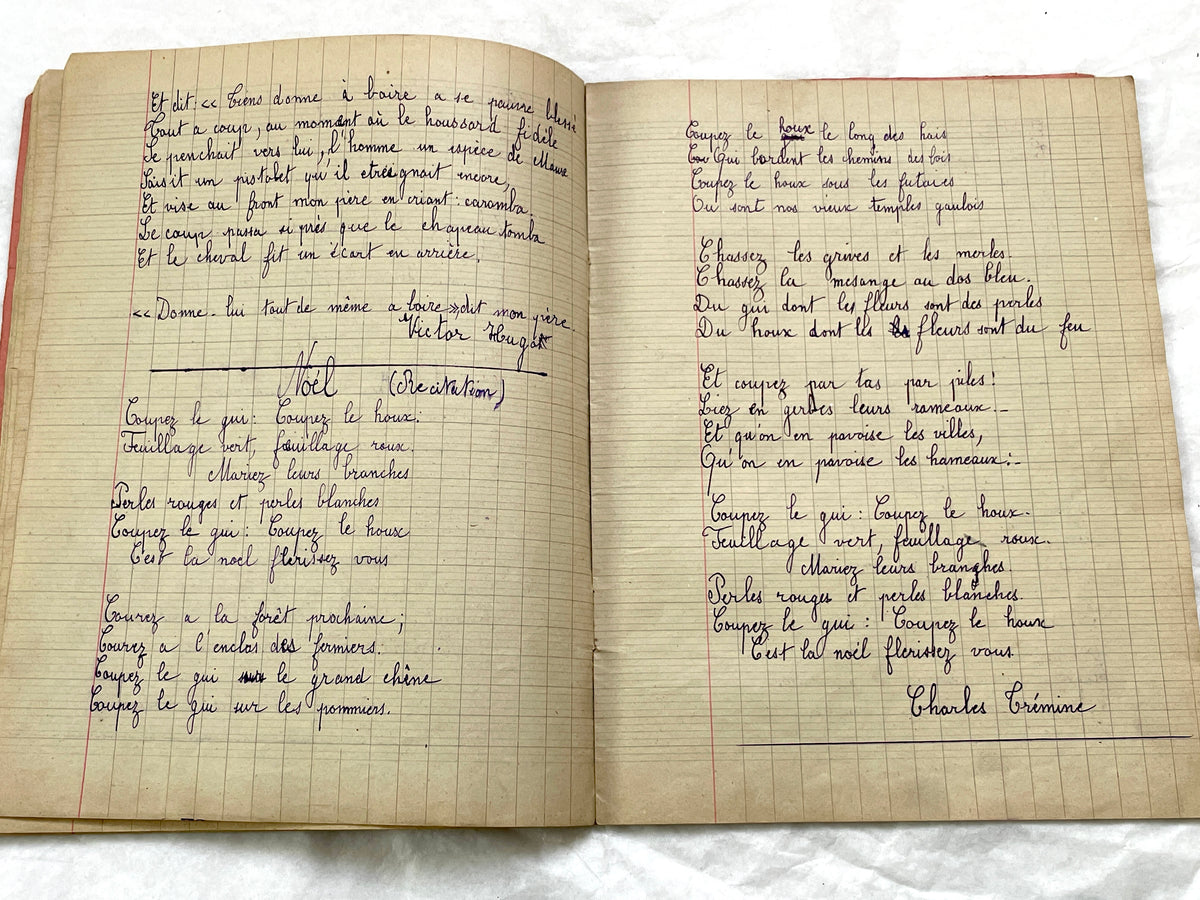 Et dit: « Tiens donne à boire a se pauvre blessé
Tout a coup, au moment où le houssard fidèle
Se penchait vers lui, l'homme un espèce de Maure
Saisit un pistolet qu'il etreignait encore,
Et vise au front mon père en criant: caramba.
Le coup passa si près que le chapeau tomba
Et le cheval fit un écart en arrière.
« Donne-lui tout de même a boire » dit mon père.
Victor Hugo
Noél (Recitation)
Coupez le gui: Coupez le houx:
Feuillage vert, feuillage roux.
Mariez leurs branches
Perles rouges et perles blanches
Coupez le gui: Coupez le houx
C'est la noël flerissez vous
Courez a la forêt prochaine;
Courez a l'enclos des fermiers.
Coupez le gui sur le grand chêne
Coupez le gui sur les pommiers.
Coupez le houx le long des hais
Qui bordent les chemins des bois
Coupez le houx sous les futaies
Ou sont nos vieux temples gaulois
Chassez les grives et les merles.
Chassez la mesange au dos bleu.
Du gui dont les fleurs sont des perles
Du houx dont les fleurs sont du feu
Et coupez par tas par piles!
Liez en gerbes leurs rameaux.-
Et qu'on en pavoise les villes,
Qu'on en pavoise les hameaux:-
Coupez le gui: Coupez le houx.
Feuillage vert, feuillage roux.
Mariez leurs branches.
Perles rouges et perles blanches.
Coupez le gui: Coupez le houx
C'est la noël flerissez vous.
Charles Trémine